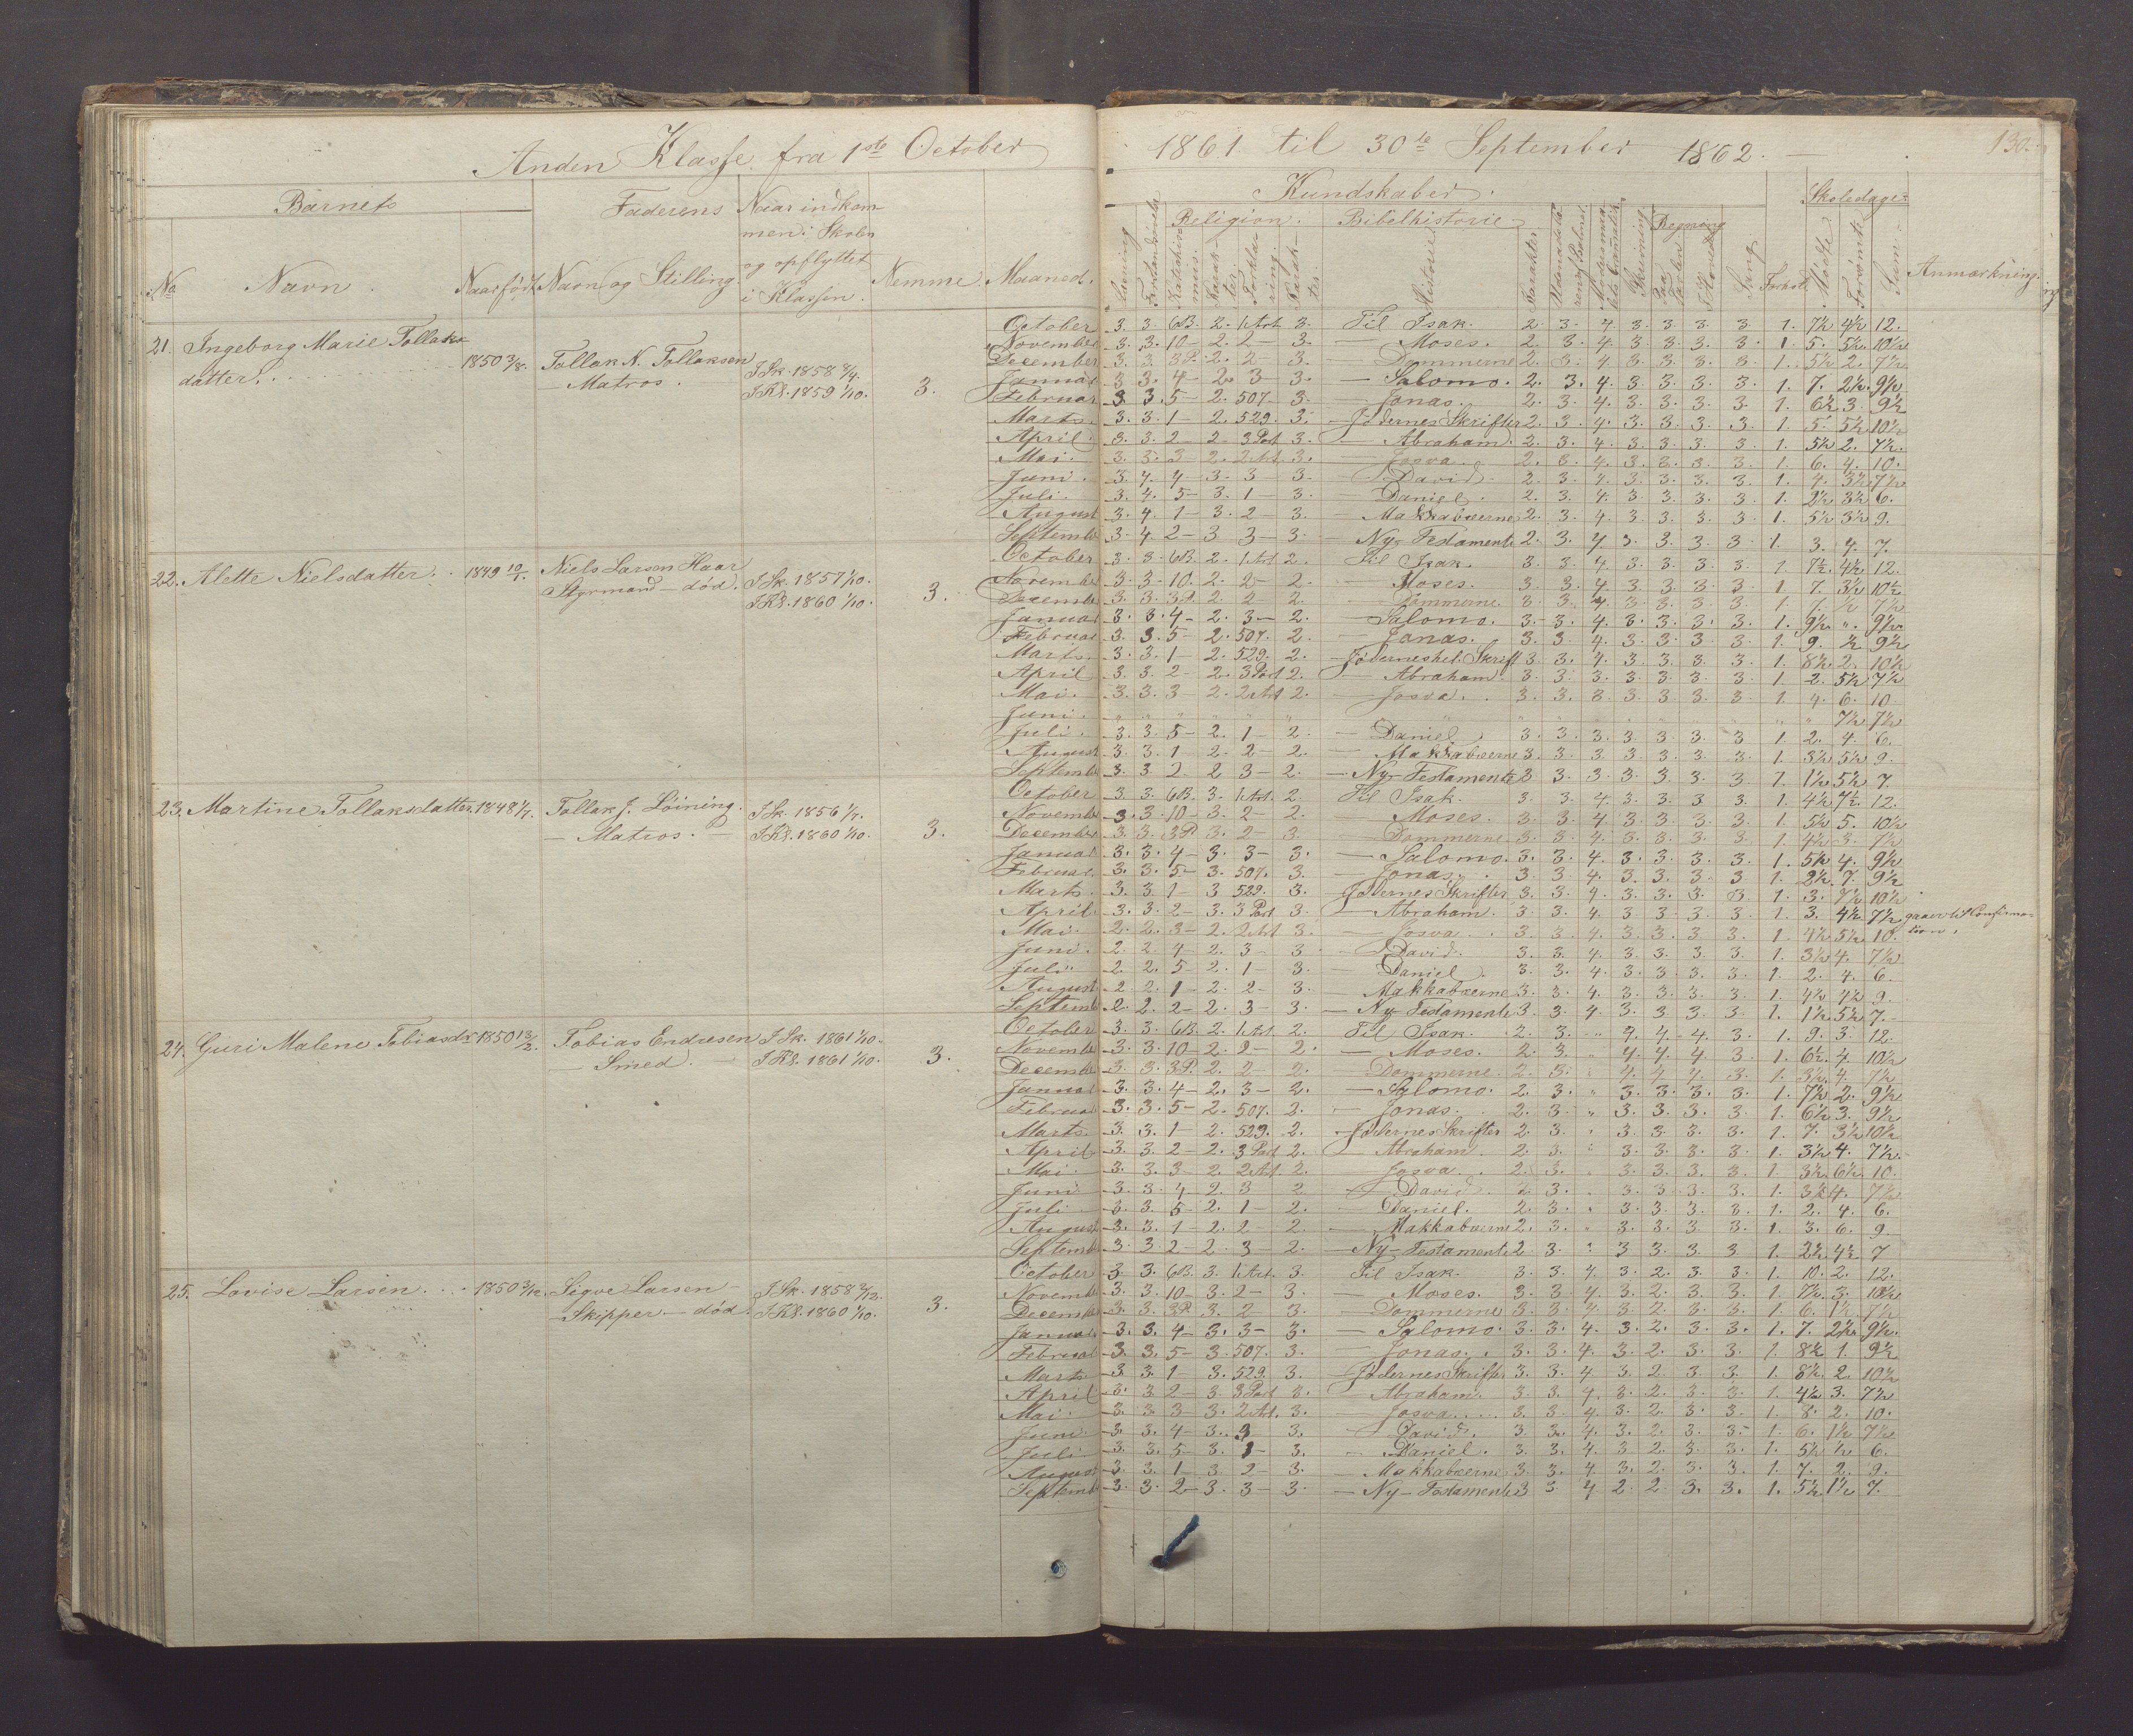 Anden Klasse fra 1ste October
1861 til 30te September 1862. —
130.
Barnets
Faderens
Naar indkom-
men i Skolen
og opflyttet
i Klassen.
No
Navn.
Naar født
Navn og Stilling.
Nemme.
Maaned.
Kundskaber.
Religion.
Bibelhistorie
Regning
Skoledage:
Læsning
Historie
Karakter
Skrivning
Paa Tavlen
I Hovedet
Sang
Forhold
Mødte
Forsømte
Sum.
Anmærkning.
21. Ingeborg Marie Tollaks-
datter. 1850 3/8. Tollak N. Tollaksen
— Matros. I Sk. 1858 8/4.
I Kl. 1859 1/10. 3.
October 3. 3. 6B. 2. 1 Art. 3. Til Isak. 2. 3. 4. 3. 3. 3. 3. 1. 7½ 4½ 12.
November 3. 3. 10 — 2. 2 — 3. — Moses. 2. 3. 4. 3. 3. 3. 3. 1. 5. 5½ 10½
December 3. 3. 3P. 2. 2 — 3. Dommerne 2. 3. 4. 3. 3. 3. 3. 1. 5½ 2. 7½
Januar 3. 3. 4 — 2. 3 — 3. — Salomo. 2. 3. 4. 3. 3. 3. 3. 1. 7. 2½ 9½
Februar 3. 3. 5 — 2. 507 3. — Jonas. 2. 3. 4. 3. 3. 3. 3. 1. 6½ 3. 9½
Marts. 3. 3. 1 — 2. 529. 3. — Jødernes Skrifter 2. 3. 4. 3. 3. 3. 3. 1. 5. 5½ 10½
April. 3. 3. 2 — 2. 3 Part 3. — Abraham. 2. 3. 4. 3. 3. 3. 3. 1. 5½ 2. 7½
Mai. 3. 3. 3 — 2. 2 Art. 3. — Josva. 2. 3. 4. 3. 3. 3. 3. 1. 6. 4. 10.
Juni. 3. 4. 4 — 3. 3 — 3. — David. 2. 3. 4. 3. 3. 3. 3. 1. 4. 3½ 7½
Juli. 3. 4. 5 — 3. 1 — 3. — Daniel. 2. 3. 4. 3. 3. 3. 3. 1. 2½ 3½ 6.
August 3. 4. 1 — 3. 2 — 3. — Makkabæerne 2. 3. 4. 3. 3. 3. 3. 1. 5½ 3½ 9.
Septemb. 3. 4. 2 — 3. 3 — 3. — Ny-Testamente 2. 3. 4. 3. 3. 3. 3. 1. 3. 4. 7.
22. Alette Nielsdatter. 1849 10/1. Niels Larsen Haar
Styrmand — død. I Sk. 1857 1/10.
I Kl. 1860 1/10. 3.
October 3. 3. 6B. 2. 1 Art. 2. Til Isak. 3. 3. 4. 3. 3. 3. 3. 1. 7½ 4½ 12.
Novemb. 3. 3. 10. 2. 2 — 2. — Moses. 3. 3. 4. 3. 3. 3. 3. 1. 7. 3½ 10½
Decemb. 3. 3. 3P. 2. 2 — 2. — Dommerne. 3. 3. 4. 3. 3. 3. 3. 1. 7. ½ 7½
Januar 3. 3. 4 — 2. 3 — 2. — Salomo. 3. 3. 4. 3. 3. 3. 3. 1. 9½ „ 9½
Februar 3. 3. 5 — 2. 507. 2. — Jonas. 3. 3. 4. 3. 3. 3. 3. 1. 9. ½ 9½
Marts. 3. 3. 1 — 2. 529. 2. — Jødernes hel. Skrift 3. 3. 4. 3. 3. 3. 3. 1. 8½ 2. 10½
April 3. 3. 2 — 2. 3 Part 2. — Abraham. 3. 3. 3. 3. 3. 3. 3. 1. 2. 5½ 7½
Mai. 3. 3. 3 — 2. 2 Art 2. — Josva. 3. 3. 3. 3. 3. 3. 3. 1. 4. 6. 10
Juni. „ „ „ „ „ „ „ „ „ 7½ 7½
Juli. 3. 3. 5 — 2. 1 — 2. — Daniel 3. 3. 3. 3. 3. 3. 3 1. 2. 4. 6.
August 3. 3. 1 — 2. 2 — 2. — Makkabæerne 3. 3. 3. 3. 3. 3. 3. 1. 3½ 5½ 9.
Septemb. 3. 3. 2. 2 3 — 2. — Ny-Testamente 3 3. 3. 3. 3. 3. 3 1. 1½ 5½ 7.
23. Martine Tollaksdatter. 1848 1/7. Tollak J. Löining.
— Matros. — I Sk. 1856 1/7.
I Kl. 1860 1/10. 3.
October 3. 3. 6B. 3. 1 Art. 2. Til Isak. 3. 3. 4. 3. 3. 3. 3. 1. 4½ 7½ 12.
Novemb. 3. 3. 10 — 3. 2 — 2. — Moses. 3. 3. 4. 3. 3. 3. 3. 1. 5½ 5. 10½
December 3. 3. 3P. 3. 2 — 3. — Dommerne 3. 3. 4. 3. 3. 3. 3. 1. 4½ 3. 7½
Januar 3. 3. 4 — 3. 3 — 3. — Salomo. 3. 3. 4. 3. 3. 3. 3. 1. 5½ 4. 9½
Februar. 3. 3. 5 — 3. 507. 3. — Jonas. 3. 3. 4. 3. 3. 3. 3 1. 2½ 7. 9½
Marts. 3. 3. 1 — 3 529. 3. Jødernes Skrifter 3. 3. 4. 3. 3. 3. 3 1. 3. 7½ 10½
April. 3. 3. 2 — 3. 3 Part. 3. — Abraham. 3. 3. 4. 3. 3. 3. 3. 1. 3. 4½ 7½ gaaer til Confirma-
tion.
Mai. 2. 2. 3 — 2. 2 Art 3. — Josva. 3. 3. 4. 3. 3. 3. 3. 1. 4½ 5½ 10.
Juni. 2 2. 4 — 2. 3 3. — David. 3. 3. 4. 3. 3. 3. 3. 1. 3½ 4. 7½
Juli 2. 2. 5 — 2. 1 — 3. — Daniel 3. 3. 4. 3. 3. 3. 3. 1. 2. 4. 6.
August 2. 2. 1 — 2. 2 — 3. — Makkabæerne 3. 3. 4. 3. 3. 3. 3. 1. 4½ 4½ 9.
Septemb. 2. 2. 2 — 2. 3 — 3. — Ny-Testamente 3. 3. 4. 3. 3. 3. 3. 1. 1½ 5½ 7.
24. Guri Malene Tobiasdr 1850 13/2. Tobias Endresen
— Smed. I Sk. 1861 1/10.
I Kl. 1861 1/10. 3.
October 3. 3. 6B. 2. 1 Art. 2. Til Isak. 2. 3. „ 4. 4. 4. 3. 1. 9. 3. 12.
Novemb. 3. 3. 10 — 2. 2 — 2. — Moses. 2. 3. „ 4. 4. 4. 3. 1. 6½ 4. 10½
Decemb. 3. 3. 3P. 2. 2 — 2. — Dommerne. 2. 3. „ 4. 4. 4. 3. 1. 3½ 4. 7½
Januar 3. 3. 4 — 2. 3 — 2. — Salomo. 2. 3. „ 3. 3. 3. 3. 1. 7½ 2. 9½
Februar 3. 3. 5 — 2. 507. 2. — Jonas. 2. 3. „ 3. 3. 3. 3. 1. 6½ 3. 9½
Marts. 3. 3. 1 — 2. 529. 2. — Jødernes Skrifter 2. 3. „ 3. 3. 3. 3. 1. 7. 3½ 10½
April 3. 3. 2 — 2. 3 Part 2. — Abraham. 2. 3. „ 3. 3. 3. 3. 1. 3½ 4. 7½
Mai. 3. 3. 3 — 2. 2 Art. 2. — Josva. 2. 3. „ 3. 3. 3. 3. 1. 3½ 6½ 10.
Juni 3. 3. 4 — 2. 3 2 — David. 2. 3. „ 3. 3. 3. 3. 1. 3½ 4. 7½
Juli 3. 3. 5 — 2. 1 — 2. — Daniel. 2. 3. „ 3. 3. 3. 3. 1. 2. 4. 6.
August 3. 3. 1 — 2. 2 — 2. — Makkabæerne 2. 3. „ 3. 3. 3. 3. 1. 3. 6. 9
Septemb. 3. 3. 2 — 2. 3 — 2. — Ny-Testamente 2. 3. „ 3 3. 3. 3. 1. 2½ 4½ 7
25. Lovise Larsen. 1850 3/12. Sigve Larsen —
— Skipper. — død. I Sk. 1858
I Kl. 1860 1/10. 3.
October 3. 3. 6B. 3. 1 Art. 3. Til Isak. 3. 3. 4. 3. 2. 3. 3. 1. 10. 2. 12.
Novemb. 3. 3. 10 — 3. 2 — 3. — Moses. 3. 3. 4. 3. 2. 3. 3. 1. 7½ 3. 10½
Decemb. 3. 3. 3P. 3. 2 3. — Dommerne 3. 3. 4. 3. 2. 3. 3. 1. 6. 1½ 7½
Januar 3. 3. 4 — 3. 3 — 3. — Salomo. 3. 3. 4. 3. 2. 3. 3. 1. 7. 2½ 9½
Februar 3. 3. 5 — 3. 507. 3. — Jonas. 3. 3. 4. 3. 2. 3. 3. 1. 8½ 1. 9½
Marts 3 3. 1 — 3. 529. 3. — Jødernes Skrifter 3. 3. 4. 3. 2. 3. 3. 1. 8½ 2. 10½
April 3. 3. 2 — 3. 3 Part 3. — Abraham. 3. 3. 4. 3. 2. 3. 3. 1. 4½ 3. 7½
Mai. 3. 3. 3 — 3. 2 Art. 3. — Josva. 3. 3. 4. 3. 2. 3. 3. 1. 8. 2. 10.
Juni 3. 3. 4 — 3. 3 3. — David. 3. 3. 4. 3. 2. 3. 3. 1. 6. 1½ 7½
Juli. 3. 3. 5 — 3. 1 — 3. — Daniel. 3. 3. 4. 3. 2. 3. 3. 1. 5½ ½ 6.
August 3. 3. 1 — 3. 2 — 3. — Makkabæerne 3. 3. 4. 3. 2. 3. 3. 1. 7. 2. 9.
Septemb. 3. 3. 2 — 3. 3 — 3. — Ny-Testamente 3 3. 4. 2. 2. 3. 3. 1. 5½ 1½ 7.